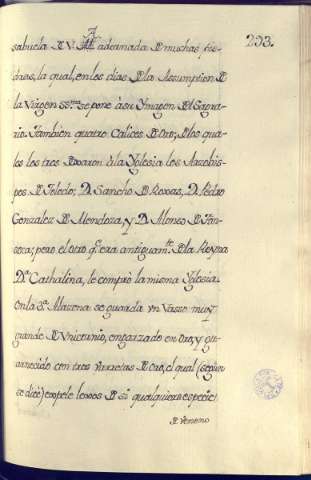 293.
sabuela D V. M. adornada D muchas pie-
dras, la qual, en los dias D la Assumption D
la Virgen SSma. se pone à su Ymagen Dl Sagra-
rio. Tambien quatro Calices D Oro; D los qua-
les los tres Dxaron à la Yglesia los Arzobis-
pos D Toledo; D. Sancho D Roxas, D. Pedro
Gonzalez D Mendoza, y D. Alonso D Fon-
seca; pero el otro q.e era antiguam.te D la Reyna
D.a Cathalina, le comprò la misma Yglesia.
En la S.a Mazona se guarda vn Vasso muy
grande D Vnicornio, engarzado en Oro, y gu-
arnecido con tres Varretas D Oro, el qual (segun
se dice) expele lexos D si qualquiera especie
D Veneno